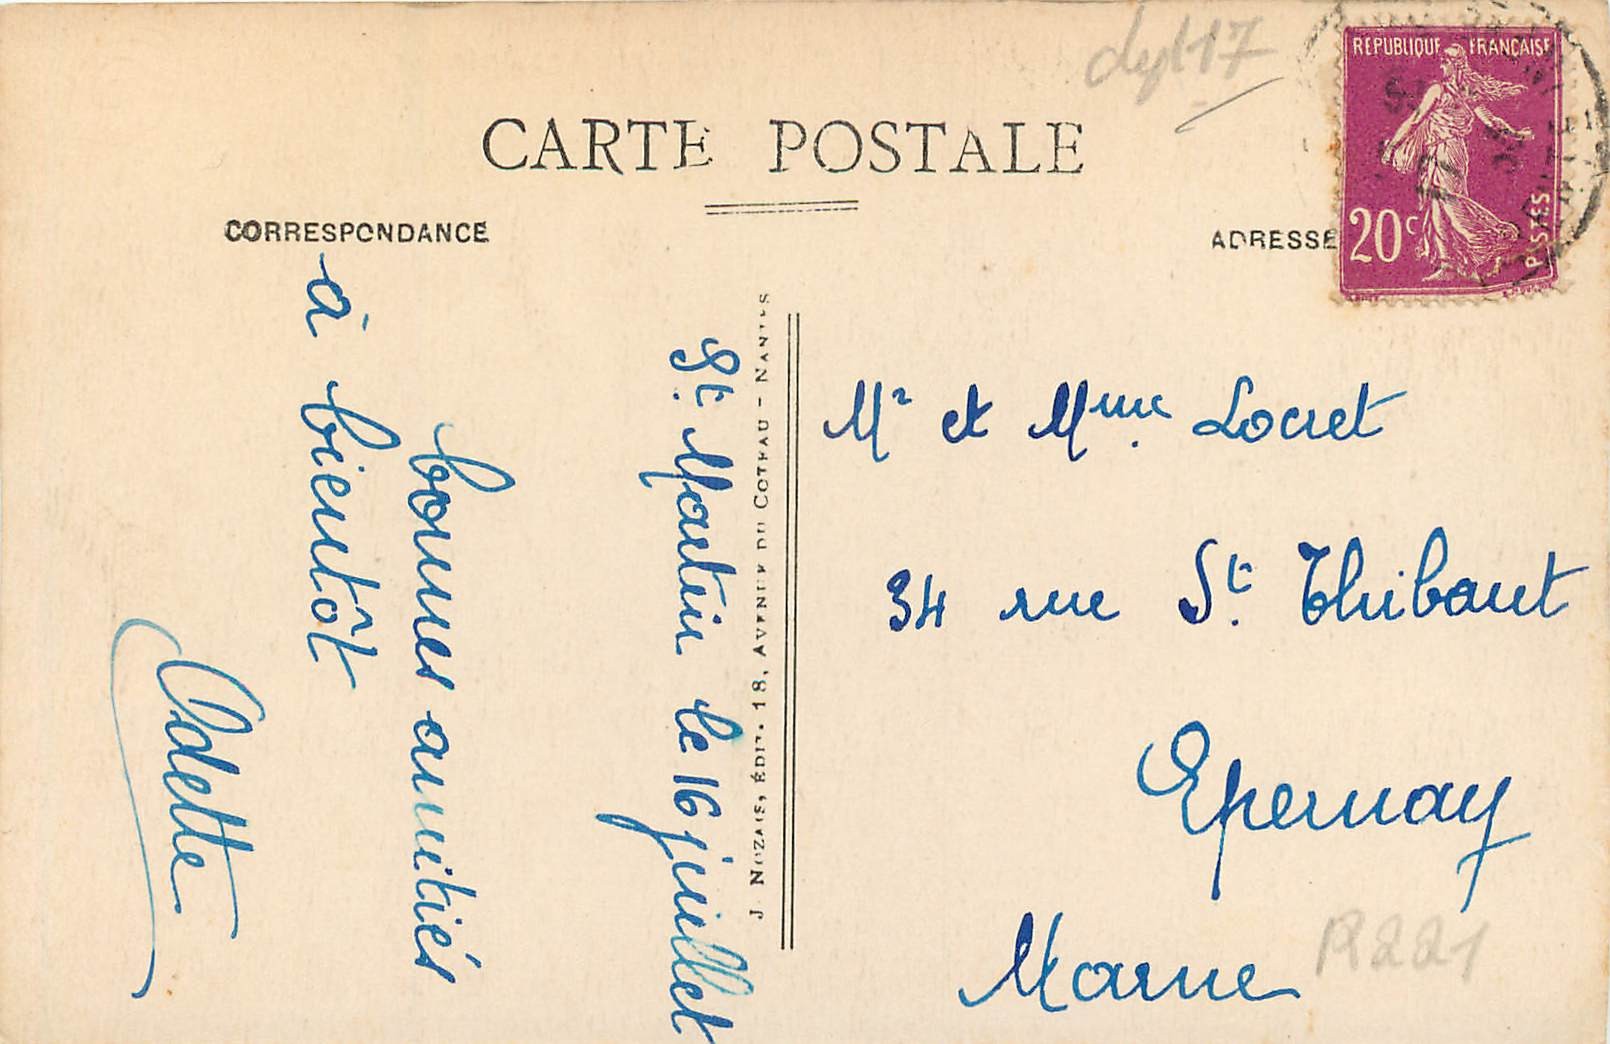 dept 17
CARTE POSTALE
CORRESPONDANCE
ADRESSE
REPUBLIQUE FRANÇAISE
20c
POSTES
St. Martin le 16 juillet
bonnes amitiés
à bientôt
Odette
J. NOZAIS, ÉDIT. 18, AVENUE DU COTEAU - NANTES
Mr et Mme Locret
34 rue St. Thibaut
Epernay
Marne
R221